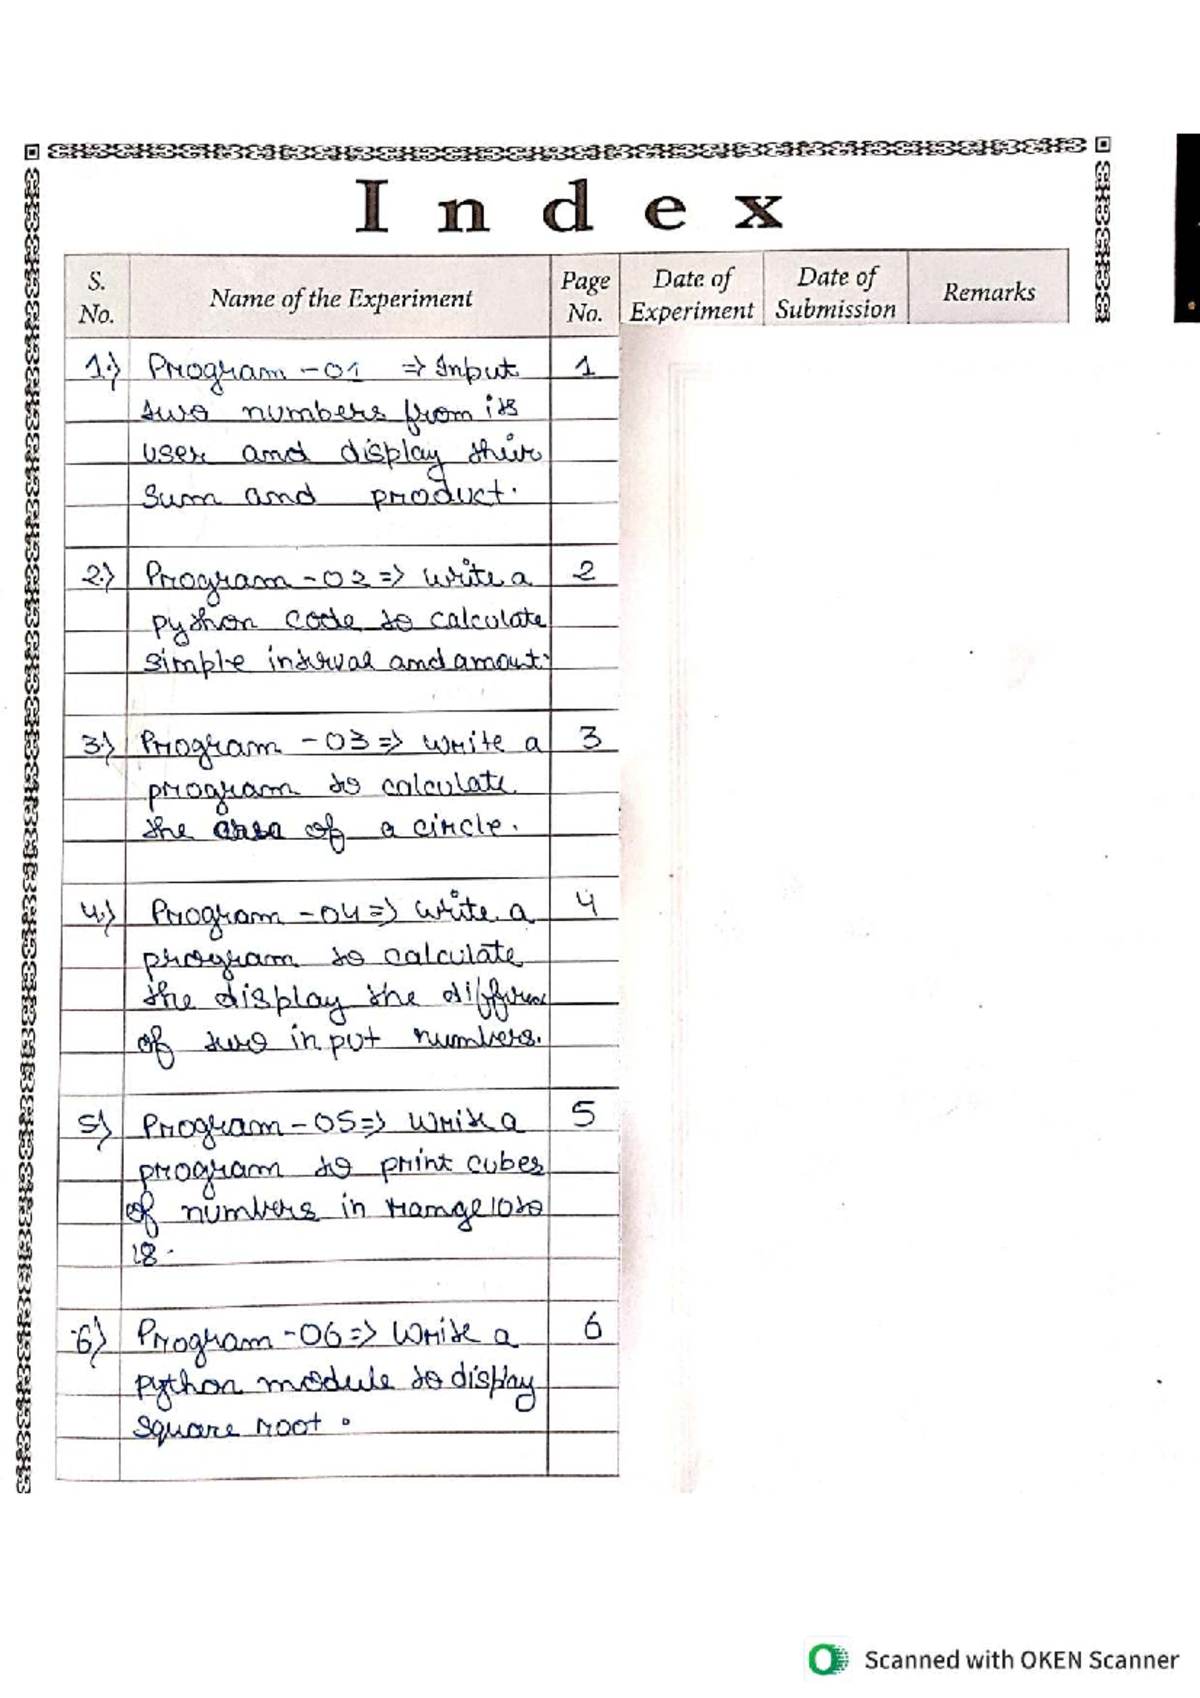 Index
S. No. Name of the Experiment Page No. Date of Experiment Date of Submission Remarks
1.) Program -01 => Input 1
two numbers from its
user and display their
sum and product.
2.) Program -02 => write a 2
python code to calculate
simple interval and amout.
3.) Program -03 => write a 3
program to calculate
the area of a circle.
4.) Program -04 => write a 4
program to calculate
the display the differenc
of two input numbers.
5) Program -05 => Write a 5
program to print cubes
of numbers in range 10 to
18.
6) Program -06 => Write a 6
python module to display
square root.
Scanned with OKEN Scanner